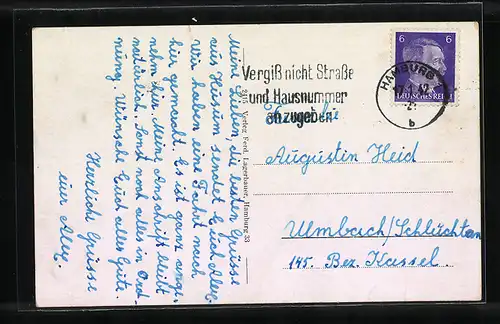 Meine Lieben, die besten Grüsse
aus Husum sendet Euch Alex.
Wir haben eine Fracht nach
hier gemacht. Es ist ganz ange-
nehm hier. Meine Anschrift bleibt
natürlich. Sonst noch alles in Ord-
nung. Wünsche Euch alles Gute.
Herzliche Grüsse
euer Alex.
2915 Verlag Ferd. Lagerbauer, Hamburg 33
Vergiß nicht Straße
und Hausnummer
anzugeben
6 6
DEUTSCHES REICH
HAMBURG
b
Familie
Augustin Heid
Ulmbach/Schlüchtern
145. Bez. Kassel.